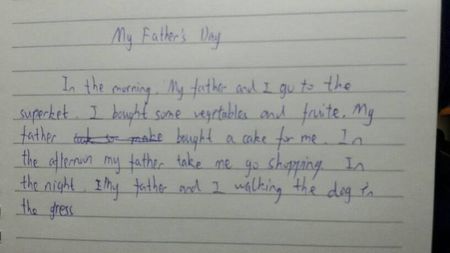 My Father's Day
In the morning. My father and I go to the
superket. I bought some vegrtables and fruite. My
father bought a cake for me. In
the afternoon my father take me go shopping. In
the night. I My father and I walking the dog in
the gress